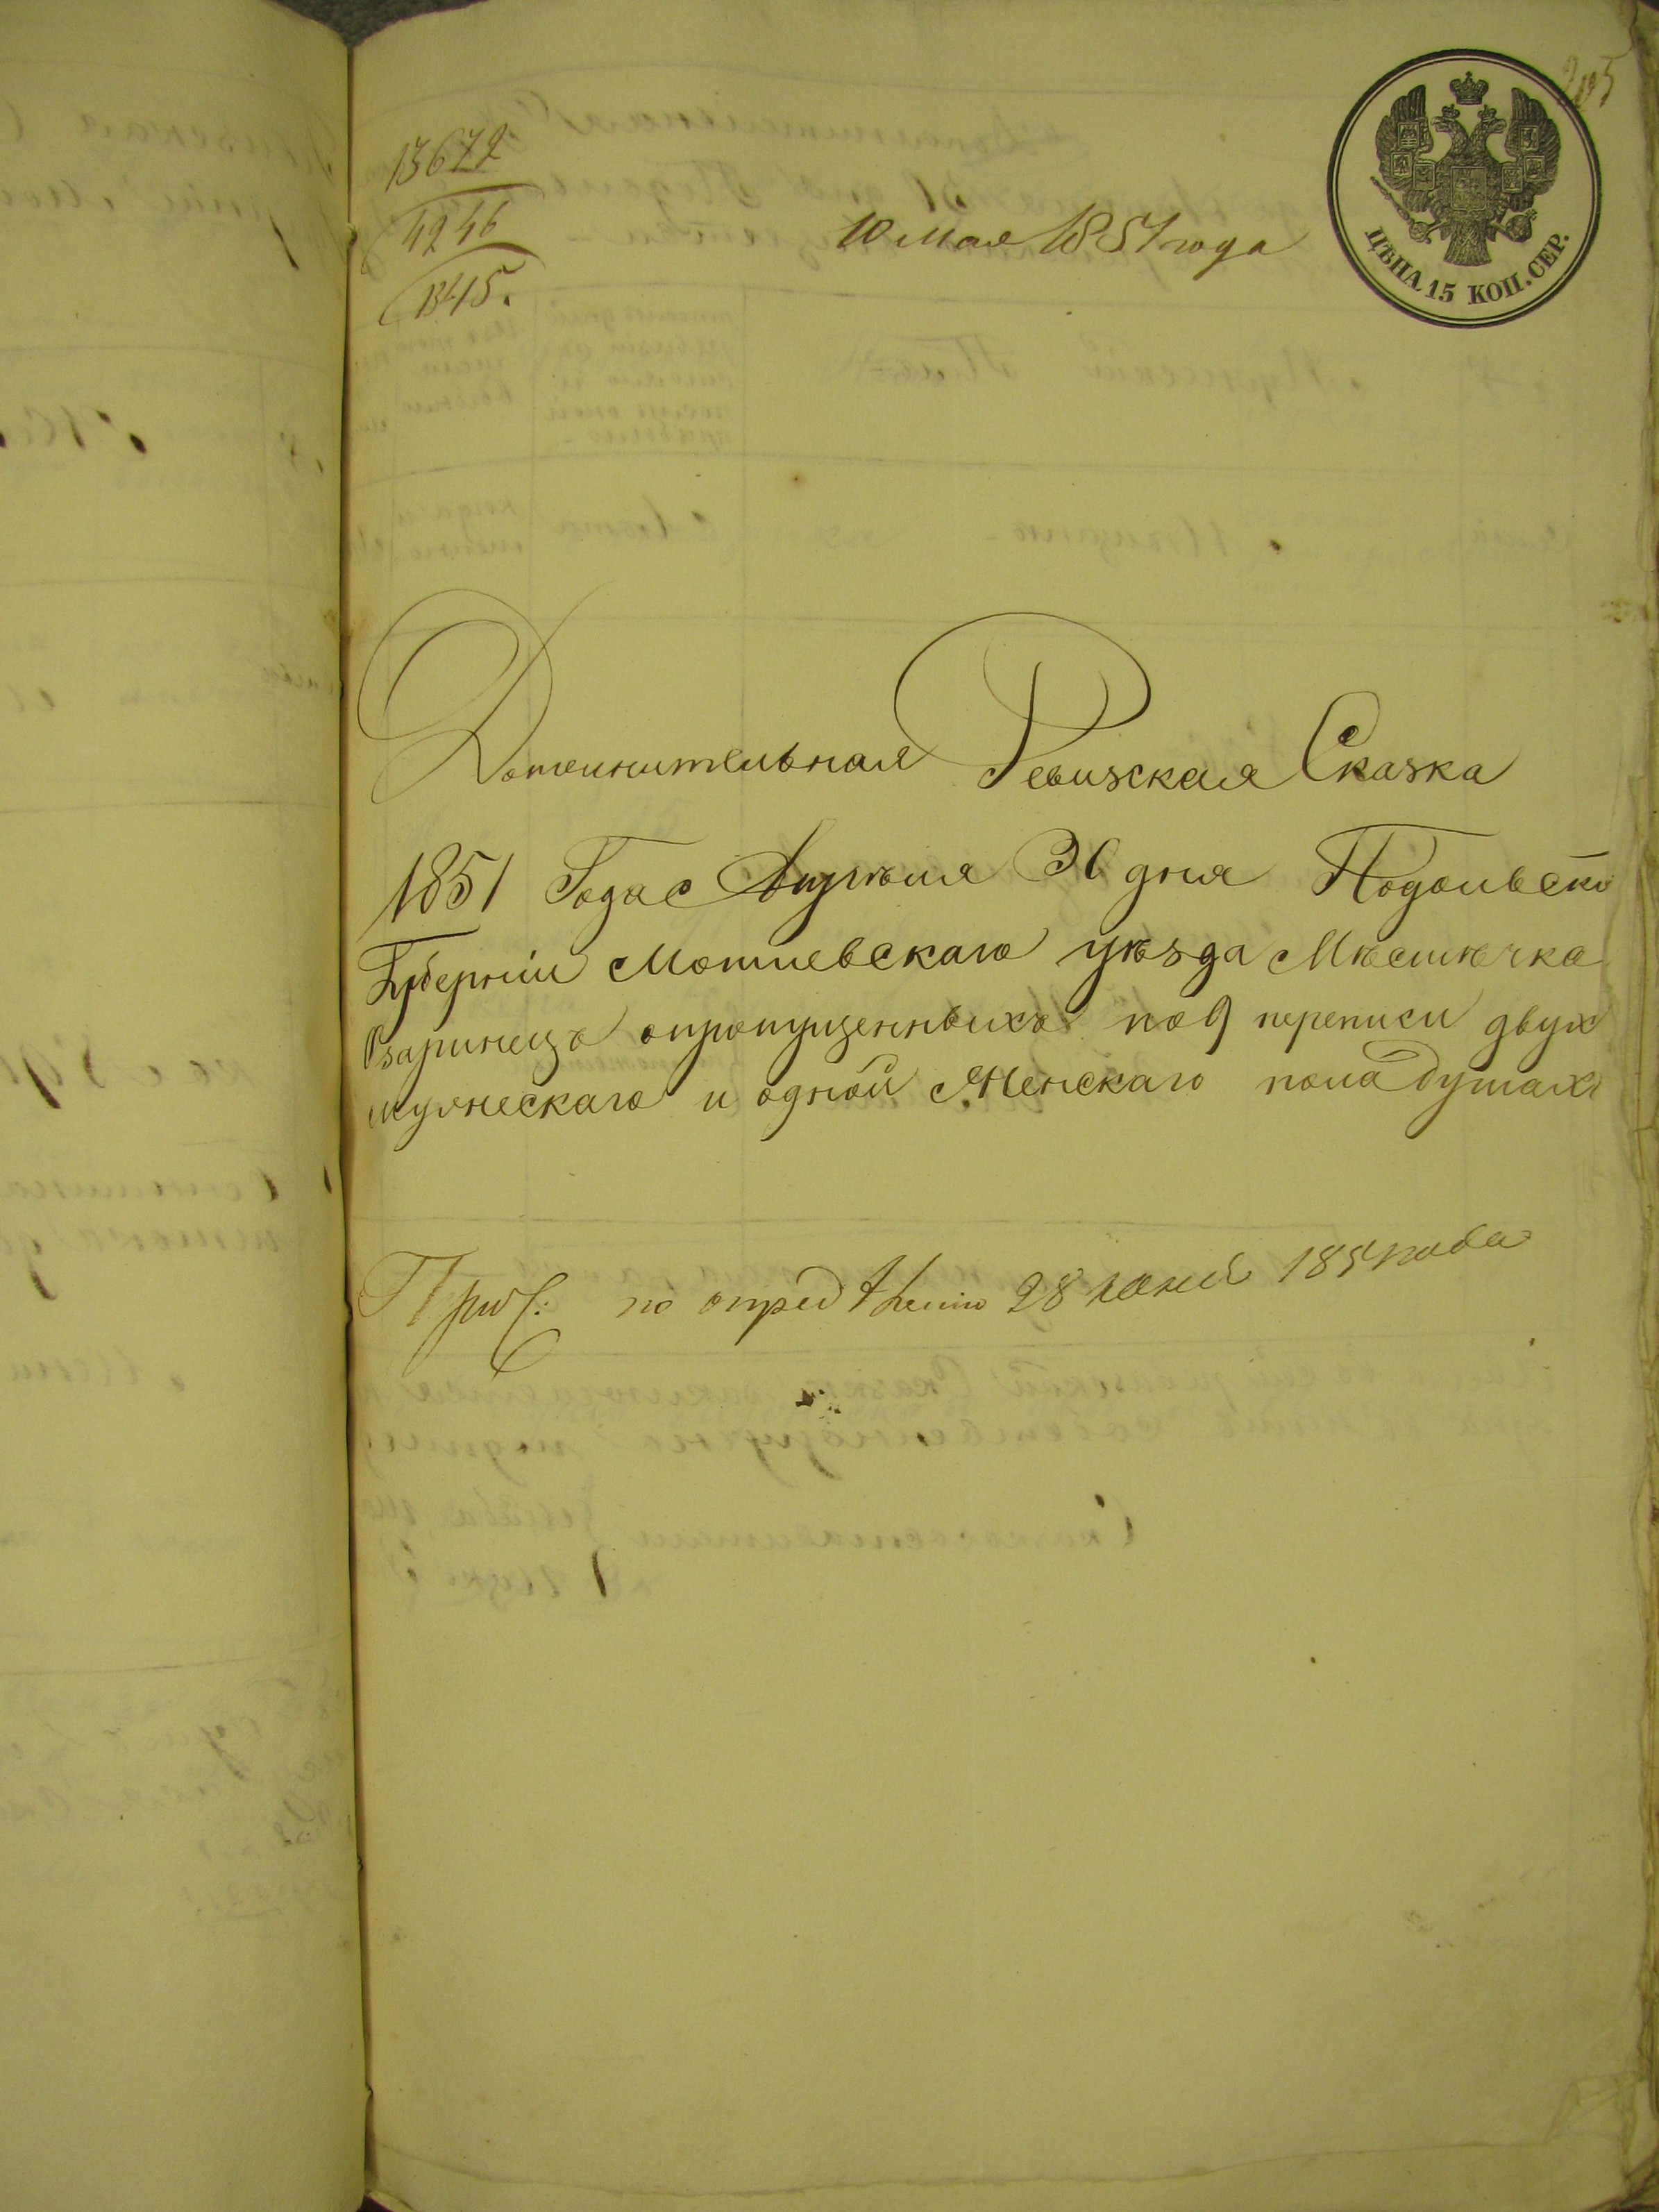 205
13672
4246
1345.
10 Мая 1851 года
ЦѢНА 15 КОП. СЕР.
Дополнительная Ревизская Сказка
1851 Года Апрѣля 30 дня Подольской
Губерніи Могилевскаго уѣзда Мѣстѣчка
Озаринецъ опропущенныхъ по 9 переписи двухъ
мужескаго и одной Женскаго пола душахъ
по опредѣленію 28 Юнія 1851 года